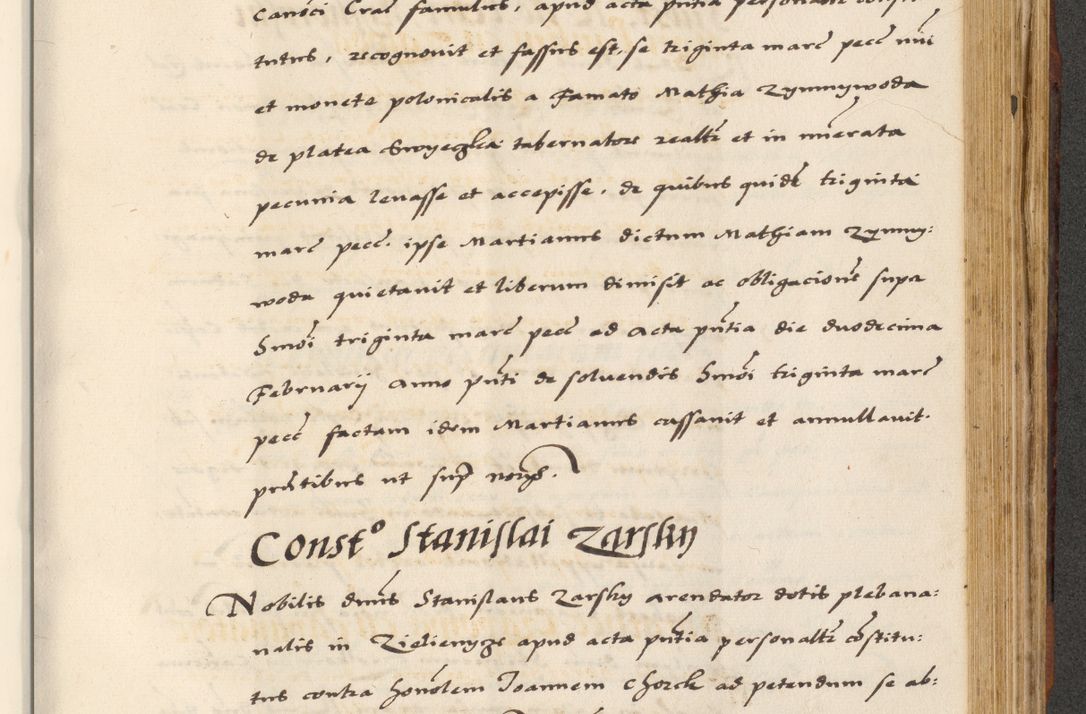 Canoci Crac famulus, apud acta pntia personaltr consti-
tutus, recognovit et fassus est, se triginta marc pecc nui
et monete polonicalis a Famato Mathia Zymnywoda
de platea Swyeczka tabernatore realtr et in nuerata
pecunia levasse et accepisse, de quibus quide triginta
marc pecc. ipse Martianus dictum Mathiam Zymny:
woda quietavit et liberum dimisit ac obligacione supr
hmoi triginta marc pecc ad Acta pntia die duodecima
Februarij Anno pnti de solvendis hmoi triginta marc
pecc factam idem Martianus cassavit et annullavit.
pntibus ut sup
Const° Stanislai Zarsky
Nobilis dnus Stanislaus Zarsky arendator dotis plebana:
nalis in Zielienyze apud acta pntia personaltr constitu:
tus contra honolem Joannem Chorek ad petendum se ab: